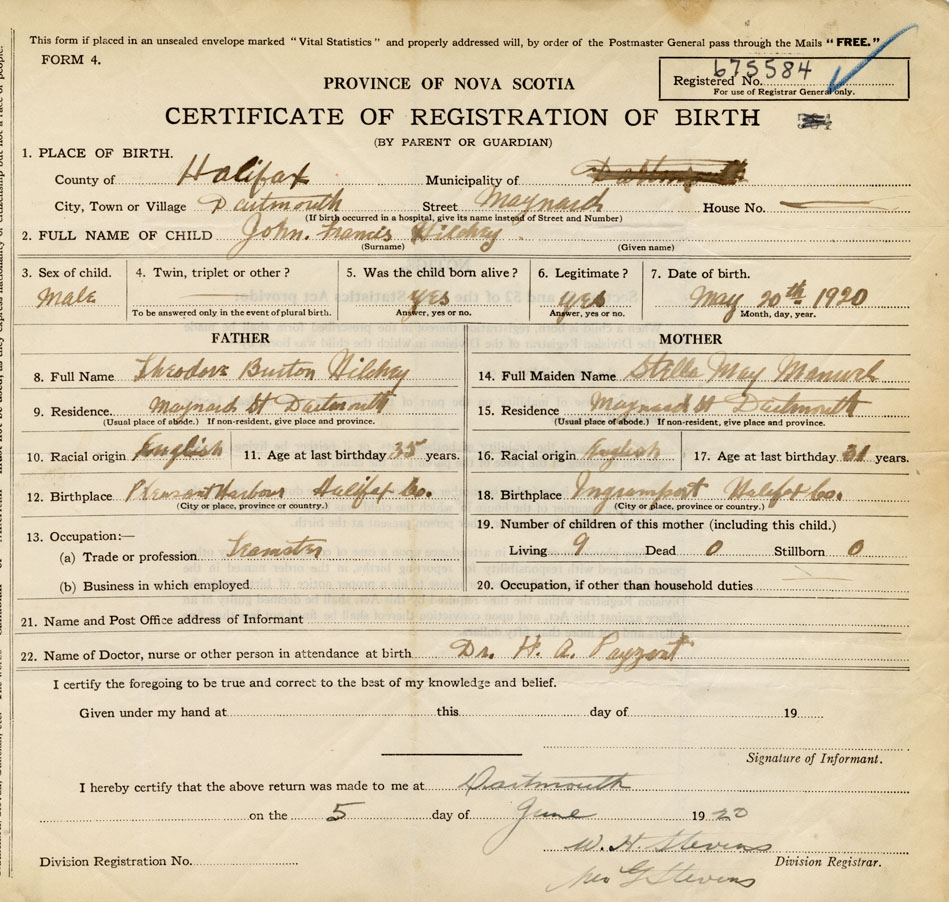 This form if placed in an unsealed envelope marked "Vital Statistics" and properly addressed will, by order of the Postmaster General pass through the Mails "FREE."
FORM 4.
Registered No. 675584
For use of Registrar General only.
PROVINCE OF NOVA SCOTIA
CERTIFICATE OF REGISTRATION OF BIRTH
(BY PARENT OR GUARDIAN)
1. PLACE OF BIRTH.
County of Halifax Municipality of
City, Town or Village Dartmouth Street Maynard House No.
(If birth occurred in a hospital, give its name instead of Street and Number)
2. FULL NAME OF CHILD John. Francis Hilchey
(Surname) (Given name)
3. Sex of child. 4. Twin, triplet or other? 5. Was the child born alive? 6. Legitimate? 7. Date of birth.
Male yes yes May 20th 1920
To be answered only in the event of plural birth. Answer, yes or no. Answer, yes or no. Month, day, year.
FATHER
8. Full Name Theodore Burton Hilchey
9. Residence. Maynard St Dartmouth
(Usual place of abode.) If non-resident, give place and province.
10. Racial origin English 11. Age at last birthday 35 years.
12. Birthplace Pleasant Harbour Halifax Co.
(City or place, province or country.)
13. Occupation:—
(a) Trade or profession Teamster
(b) Business in which employed
MOTHER
14. Full Maiden Name Stella May Manuel
15. Residence. Maynard St Dartmouth
(Usual place of abode.) If non-resident, give place and province.
16. Racial origin English 17. Age at last birthday 31 years.
18. Birthplace Ingramport Halifax Co.
(City or place, province or country.)
19. Number of children of this mother (including this child.)
Living 9 Dead 0 Stillborn 0
20. Occupation, if other than household duties
21. Name and Post Office address of Informant
22. Name of Doctor, nurse or other person in attendance at birth Dr. H. A. Payzant
I certify the foregoing to be true and correct to the best of my knowledge and belief.
Given under my hand at this day of 19
Signature of Informant.
I hereby certify that the above return was made to me at Dartmouth
on the 5 day of June 1920
W. H. Stevens
Division Registration No. Division Registrar.
G Stevens